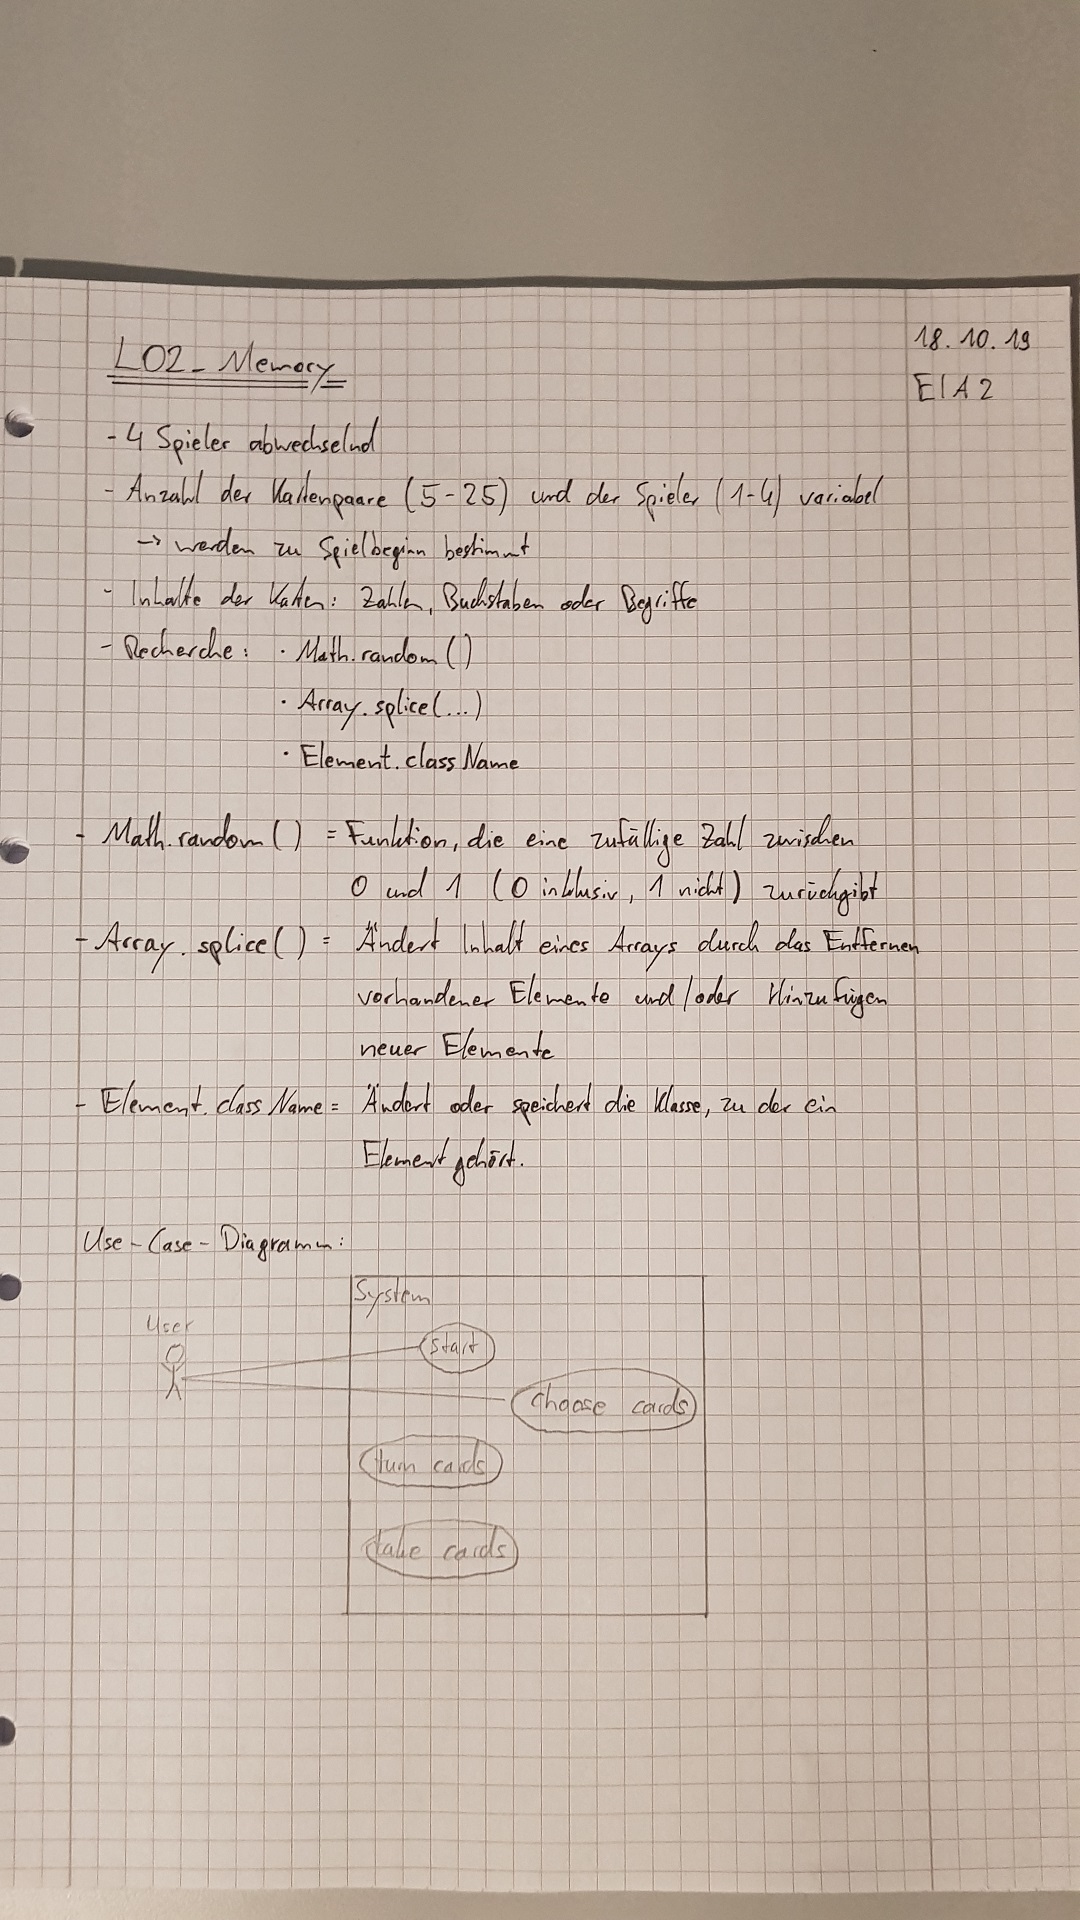 L02_Memory
18.10.19
EIA2
- 4 Spieler abwechselnd
- Anzahl der Kartenpaare (5-25) und der Spieler (1-4) variabel
→ werden zu Spielbeginn bestimmt
- Inhalte der Karten: Zahlen, Buchstaben oder Begriffe
- Recherche: · Math.random()
· Array.splice(...)
· Element.className
- Math.random() = Funktion, die eine zufällige Zahl zwischen
0 und 1 (0 inklusiv, 1 nicht) zurückgibt
- Array.splice() = Ändert Inhalt eines Arrays durch das Entfernen
vorhandener Elemente und/oder Hinzufügen
neuer Elemente
- Element.className = Ändert oder speichert die Klasse, zu der ein
Element gehört.
Use-Case-Diagramm:
System
User
start
choose cards
turn cards
take cards